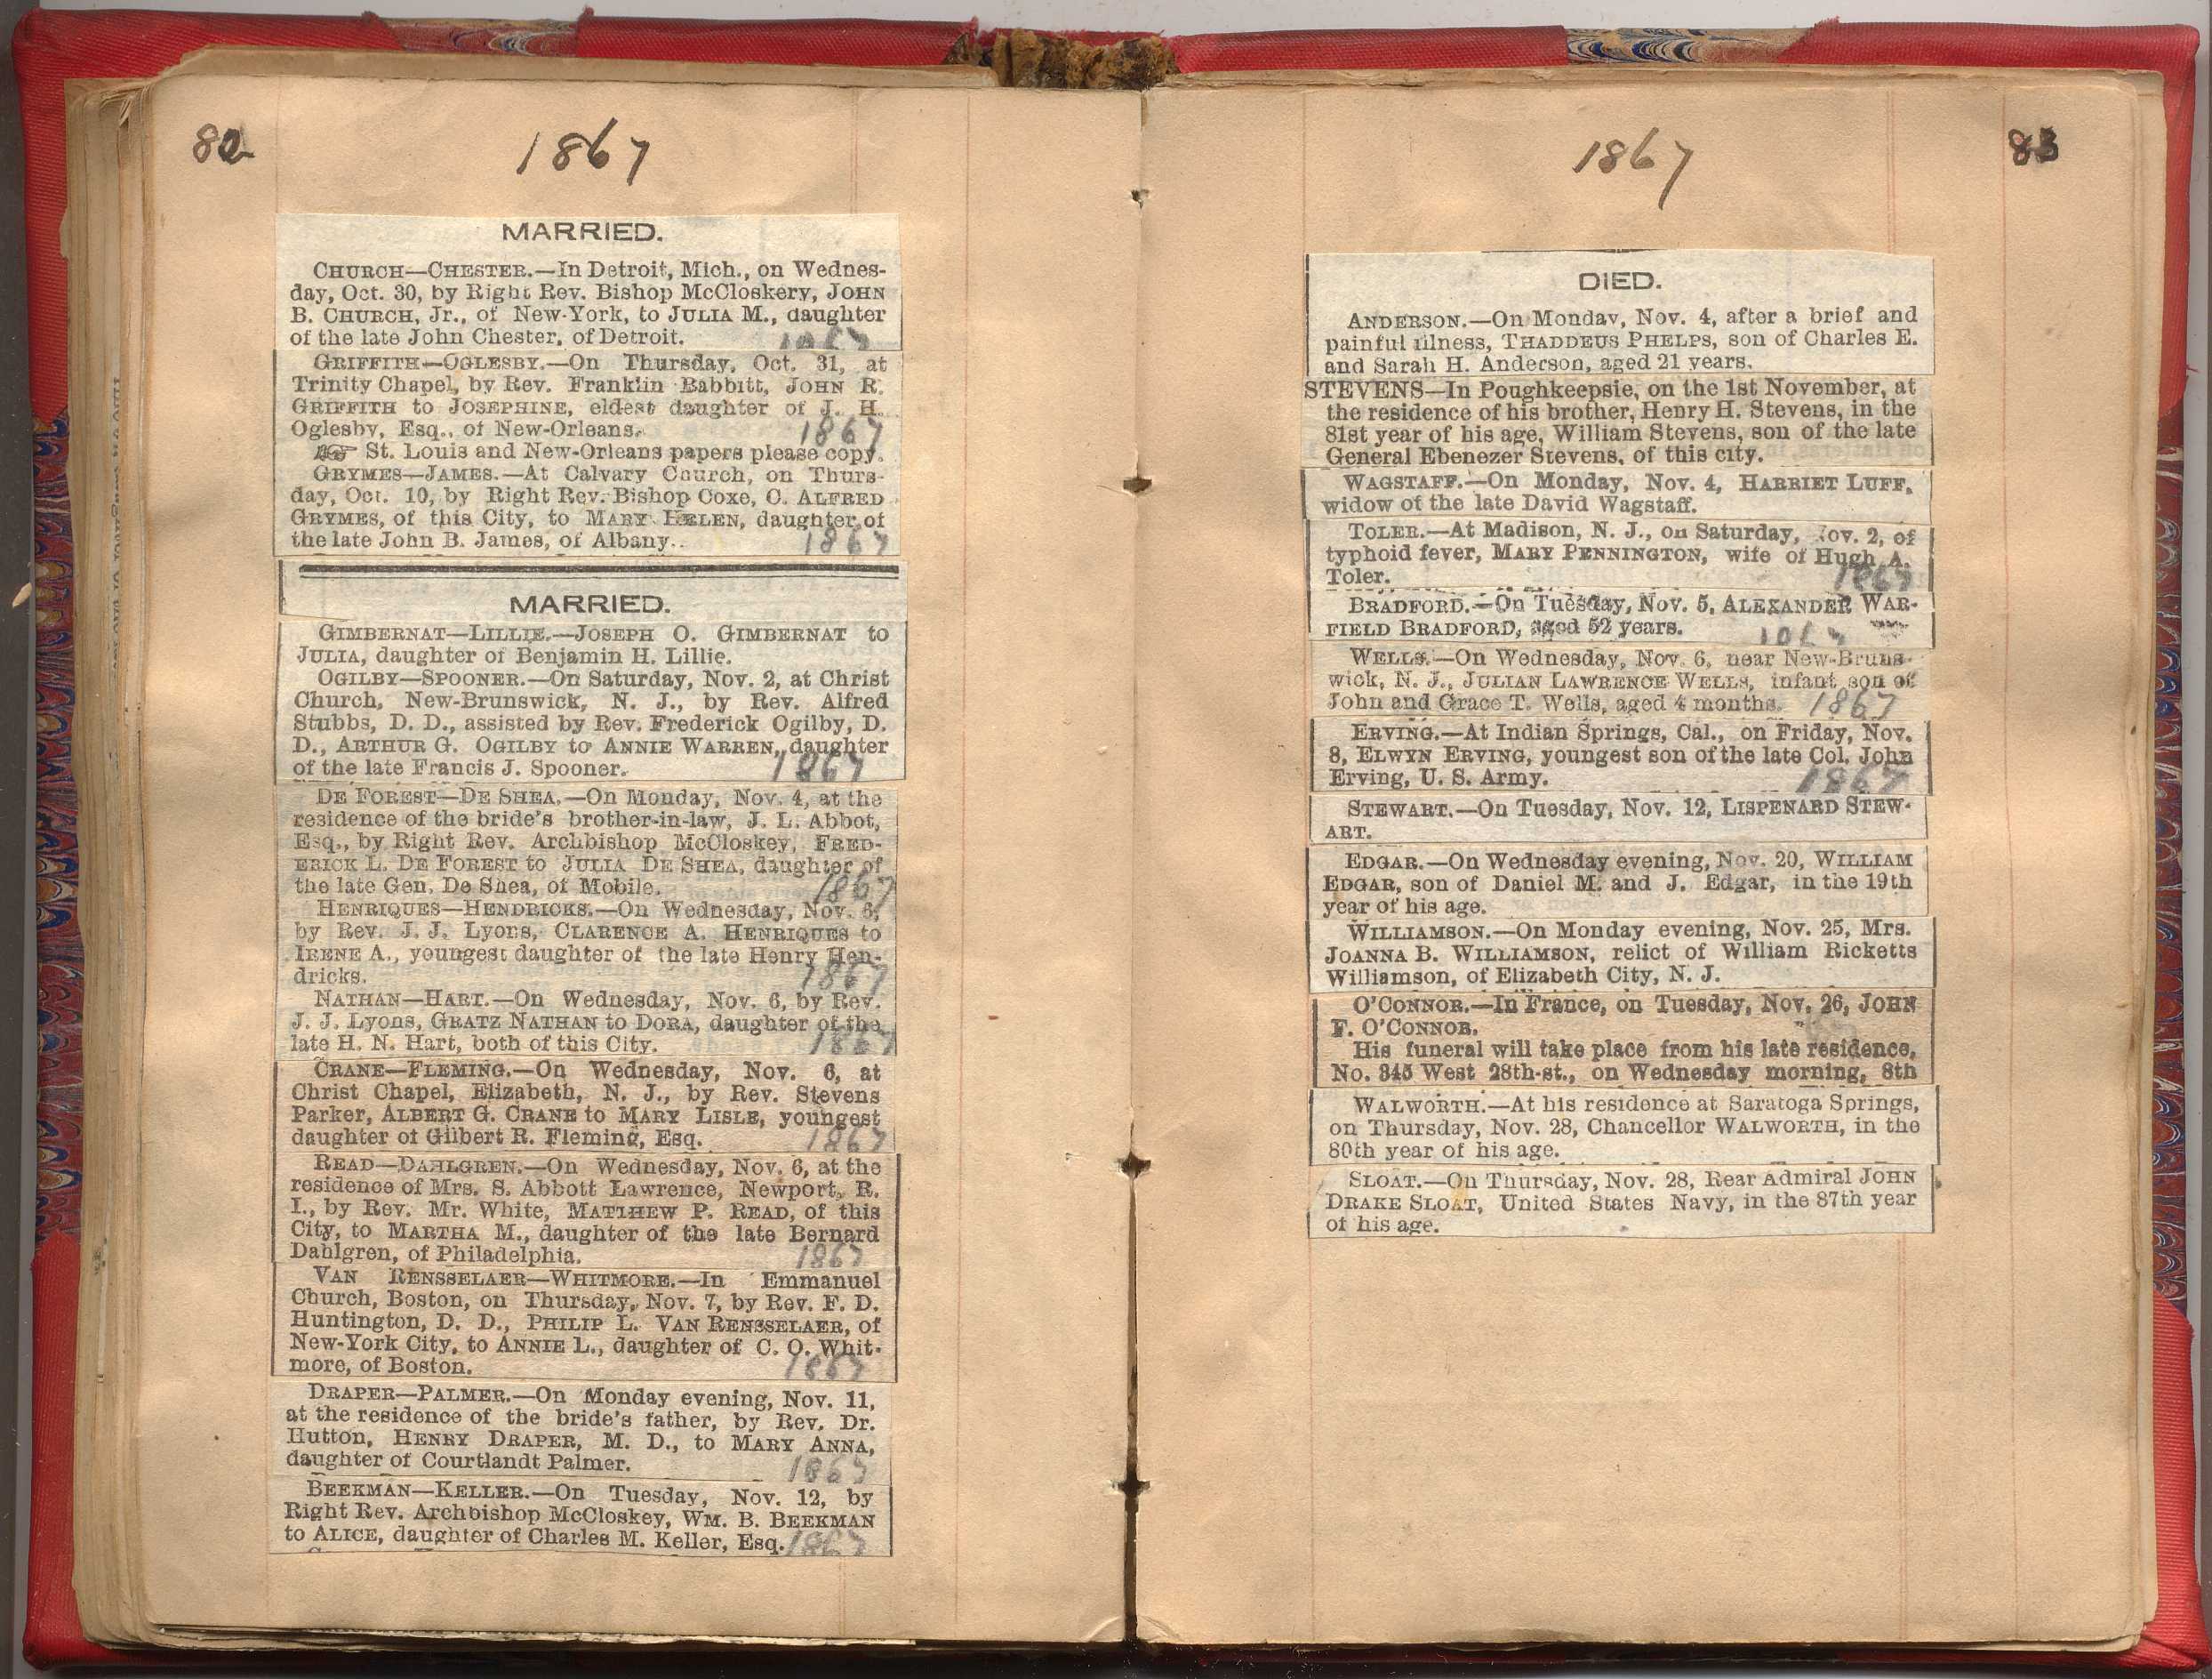 82
1867
MARRIED.
CHURCH—CHESTER.—In Detroit, Mich., on Wednes-
day, Oct. 30, by Right Rev. Bishop McCloskery, JOHN
B. CHURCH, Jr., of New-York, to JULIA M., daughter
of the late John Chester, of Detroit. 1867
GRIFFITH—OGLESBY.—On Thursday, Oct. 31, at
Trinity Chapel, by Rev. Franklin Babbitt, JOHN R.
GRIFFITH to JOSEPHINE, eldest daughter of J. H.
Oglesby, Esq., of New-Orleans. 1867
☞ St. Louis and New-Orleans papers please copy.
GRYMES—JAMES.—At Calvary Church, on Thurs-
day, Oct. 10, by Right Rev. Bishop Coxe, C. ALFRED
GRYMES, of this City, to MARY HELEN, daughter of
the late John B. James, of Albany. 1867
MARRIED.
GIMBERNAT—LILLIE.—JOSEPH O. GIMBERNAT to
JULIA, daughter of Benjamin H. Lillie.
OGILBY—SPOONER.—On Saturday, Nov. 2, at Christ
Church, New-Brunswick, N. J., by Rev. Alfred
Stubbs, D. D., assisted by Rev. Frederick Ogilby, D.
D., ARTHUR G. OGILBY to ANNIE WARREN, daughter
of the late Francis J. Spooner. 1867
DE FOREST—DE SHEA.—On Monday, Nov. 4, at the
residence of the bride's brother-in-law, J. L. Abbot,
Esq., by Right Rev. Archbishop McCloskey, FRED-
ERICK L. DE FOREST to JULIA DE SHEA, daughter of
the late Gen. De Shea, of Mobile. 1867
HENRIQUES—HENDRICKS.—On Wednesday, Nov. 6,
by Rev. J. J. Lyons, CLARENCE A. HENRIQUES to
IRENE A., youngest daughter of the late Henry Hen-
dricks. 1867
NATHAN—HART.—On Wednesday, Nov. 6, by Rev.
J. J. Lyons, GRATZ NATHAN to DORA, daughter of the
late H. N. Hart, both of this City. 1867
CRANE—FLEMING.—On Wednesday, Nov. 6, at
Christ Chapel, Elizabeth, N. J., by Rev. Stevens
Parker, ALBERT G. CRANE to MARY LISLE, youngest
daughter of Gilbert R. Fleming, Esq. 1867
READ—DAHLGREN.—On Wednesday, Nov. 6, at the
residence of Mrs. S. Abbott Lawrence, Newport, R.
I., by Rev. Mr. White, MATTHEW P. READ, of this
City, to MARTHA M., daughter of the late Bernard
Dahlgren, of Philadelphia. 1867
VAN RENSSELAER—WHITMORE.—In Emmanuel
Church, Boston, on Thursday, Nov. 7, by Rev. F. D.
Huntington, D. D., PHILIP L. VAN RENSSELAER, of
New-York City, to ANNIE L., daughter of C. O. Whit-
more, of Boston. 1867
DRAPER—PALMER.—On Monday evening, Nov. 11,
at the residence of the bride's father, by Rev. Dr.
Hutton, HENRY DRAPER, M. D., to MARY ANNA,
daughter of Courtlandt Palmer. 1867
BEEKMAN—KELLER.—On Tuesday, Nov. 12, by
Right Rev. Archbishop McCloskey, WM. B. BEEKMAN
to ALICE, daughter of Charles M. Keller, Esq. 1867
1867
83
DIED.
ANDERSON.—On Monday, Nov. 4, after a brief and
painful illness, THADDEUS PHELPS, son of Charles E.
and Sarah H. Anderson, aged 21 years.
STEVENS—In Poughkeepsie, on the 1st November, at
the residence of his brother, Henry H. Stevens, in the
81st year of his age, William Stevens, son of the late
General Ebenezer Stevens, of this city.
WAGSTAFF.—On Monday, Nov. 4, HARRIET LUFF,
widow of the late David Wagstaff.
TOLER.—At Madison, N. J., on Saturday, Nov. 2, of
typhoid fever, MARY PENNINGTON, wife of Hugh A.
Toler. 1867
BRADFORD.—On Tuesday, Nov. 5, ALEXANDER WAR-
FIELD BRADFORD, aged 52 years. 1867
WELLS.—On Wednesday, Nov. 6, near New-Bruns-
wick, N. J., JULIAN LAWRENCE WELLS, infant son of
John and Grace T. Wells, aged 4 months. 1867
ERVING.—At Indian Springs, Cal., on Friday, Nov.
8, ELWYN ERVING, youngest son of the late Col. John
Erving, U. S. Army. 1867
STEWART.—On Tuesday, Nov. 12, LISPENARD STEW-
ART.
EDGAR.—On Wednesday evening, Nov. 20, WILLIAM
EDGAR, son of Daniel M. and J. Edgar, in the 19th
year of his age.
WILLIAMSON.—On Monday evening, Nov. 25, Mrs.
JOANNA B. WILLIAMSON, relict of William Ricketts
Williamson, of Elizabeth City, N. J.
O'CONNOR.—In France, on Tuesday, Nov. 26, JOHN
F. O'CONNOR.
His funeral will take place from his late residence,
No. 345 West 28th-st., on Wednesday morning, 8th
WALWORTH.—At his residence at Saratoga Springs,
on Thursday, Nov. 28, Chancellor WALWORTH, in the
80th year of his age.
SLOAT.—On Thursday, Nov. 28, Rear Admiral JOHN
DRAKE SLOAT, United States Navy, in the 87th year
of his age.